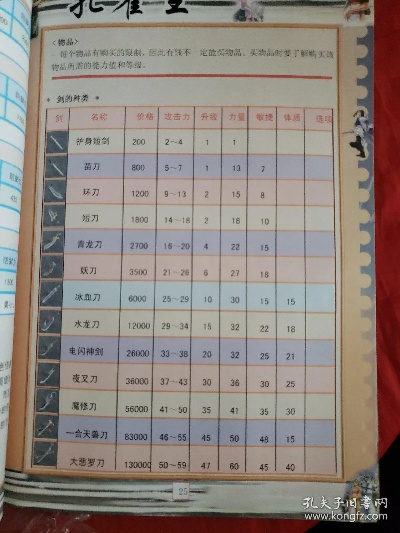 孔雀王
<物品>
一每个物品有购买的限制，因此有钱不一定能买物品。买物品时要了解购买该
物品所需的能力值和等级。
* 剑的种类 *
剑 名称 价格 攻击力 升级 力量 敏捷 体质 选项
护身短剑 200 2-4 1 1
苗刀 800 5-7 1 13 7
环刀 1200 9-13 2 15 8
短刀 1800 14-18 2 18 10
青龙刀 2700 18-20 4 22 15
妖刀 3500 21-26 6 27 18
冰血刀 6000 25-29 10 30 15 15
水龙刀 12000 29-34 15 32 22 18
电闪神剑 26000 33-38 20 32 25 21
夜叉刀 36000 37-43 30 36 30 25
魔修刀 56000 41-50 35 41 35 30
一合天兽刀 83000 46-55 45 50 48 15
大悲罗刀 130000 50-59 47 60 45 40
25
孔夫子旧书网
www.kongfz.com